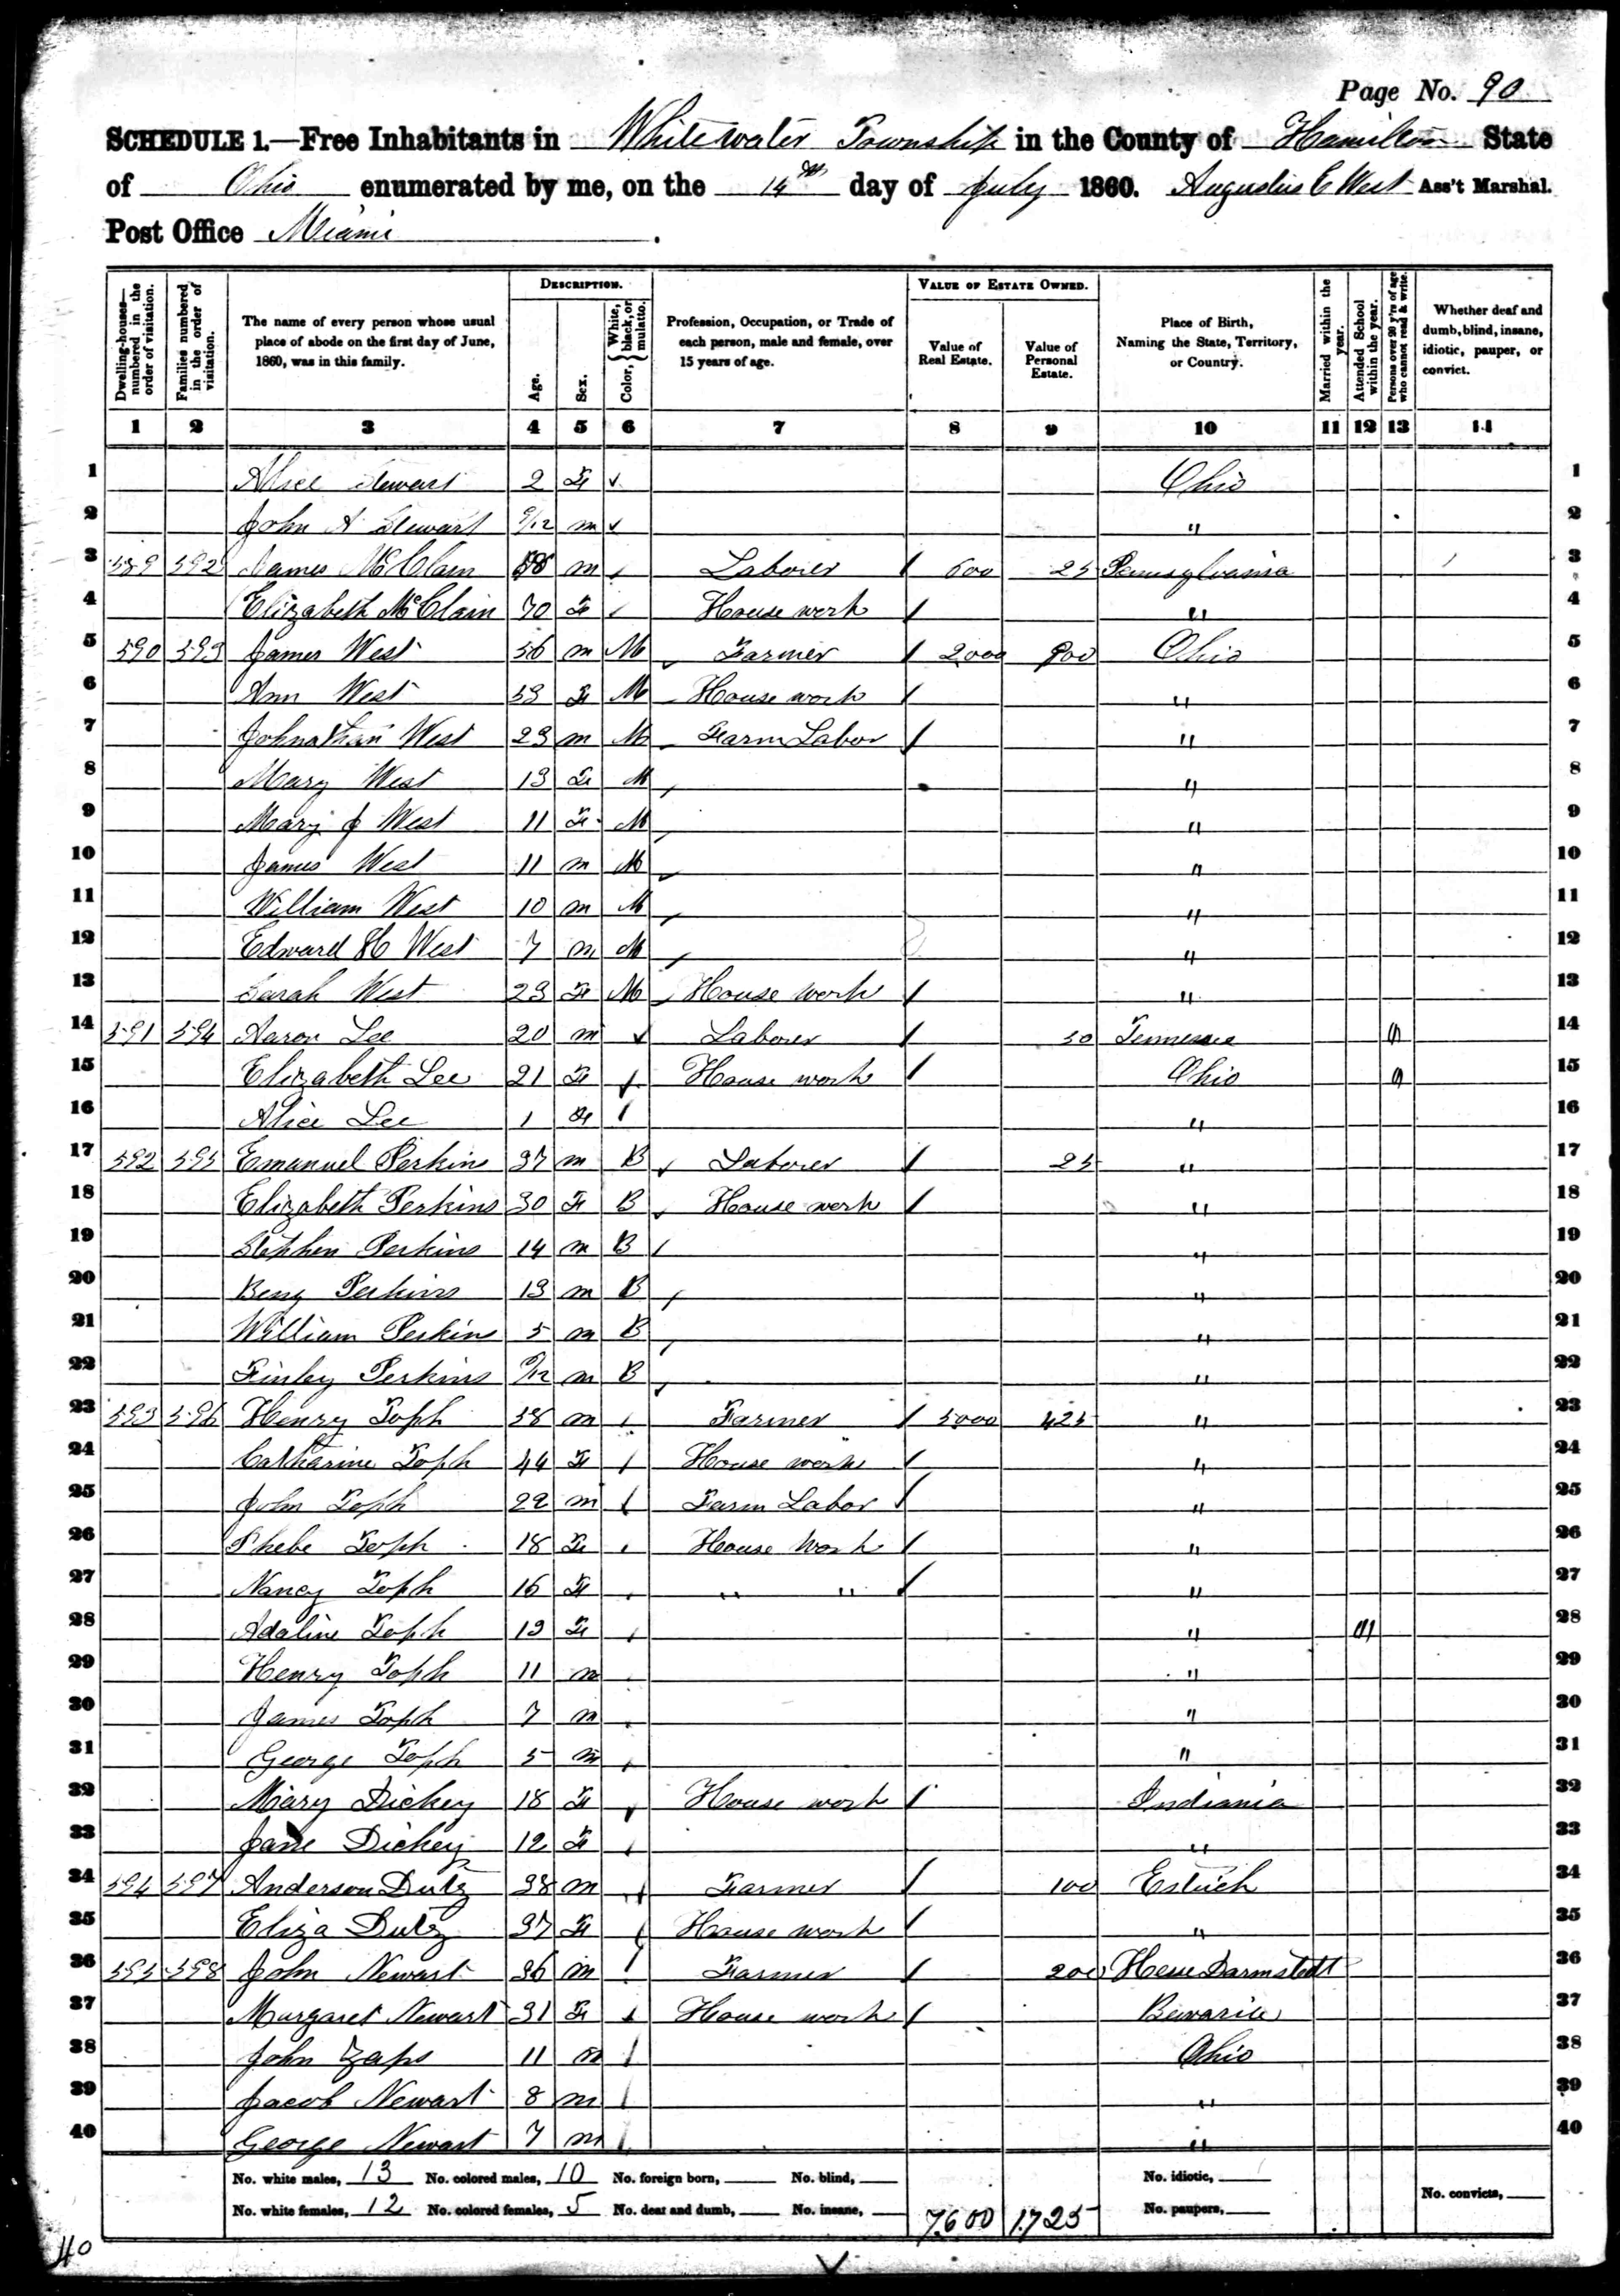 Page No. 90
SCHEDULE 1.—Free Inhabitants in Whitewater Township in the County of Hamilton State
of Ohio enumerated by me, on the 14th day of July 1860. Augustus C West Ass't Marshal.
Post Office Miami.
DESCRIPTION. VALUE OF ESTATE OWNED.
Dwelling-houses—numbered in the order of visitation. Families numbered in the order of visitation. The name of every person whose usual place of abode on the first day of June, 1860, was in this family. Age. Sex. Color, { White, black, or mulatto. Profession, Occupation, or Trade of each person, male and female, over 15 years of age. Value of Real Estate. Value of Personal Estate. Place of Birth, Naming the State, Territory, or Country. Married within the year. Attended School within the year. Persons over 20 y'rs of age who cannot read & write. Whether deaf and dumb, blind, insane, idiotic, pauper, or convict.
1 2 3 4 5 6 7 8 9 10 11 12 13 14
1 Alice Stewart 2 F Ohio 1
2 John A Stewart 9/12 m " 2
3 589 592 James McClain m Laborer 600 25 Pennsylvania 3
4 Elizabeth McClain 70 F House work " 4
5 590 593 James West 56 m M Farmer 2000 Ohio 5
6 Ann West 53 F M House work " 6
7 Johnathan West 23 m M Farm Labor / " 7
8 Mary West 13 F M " 8
9 Mary J West 11 F M " 9
10 James West 11 m M " 10
11 William West 10 m M " 11
12 Edward H West 7 m M " 12
13 Sarah West 23 F M House work / " 13
14 591 594 Aaron Lee 20 m Laborer / 50 Tennessee 1 14
15 Elizabeth Lee 21 F House work / Ohio 1 15
16 Alice Lee 1 F " 16
17 592 595 Emanuel Perkins 37 m B Laborer / 25 " 17
18 Elizabeth Perkins 30 F B House work / " 18
19 Stephen Perkins 14 m B " 19
20 Benj Perkins 13 m B " 20
21 William Perkins 5 m B " 21
22 Finley Perkins 9/12 m B " 22
23 593 596 Henry Toph 58 m Farmer / 5000 425 " 23
24 Catharine Toph 44 F House work / " 24
25 John Toph 22 m Farm Labor / " 25
26 Phebe Toph 18 F House Work / " 26
27 Nancy Toph 16 F " " / " 27
28 Adaline Toph 13 F " 1 28
29 Henry Toph 11 m " 29
30 James Toph 7 m " 30
31 George Toph 5 m " 31
32 Mary Dickey 18 F House work / Indiania 32
33 Jane Dickey 12 F " 33
34 594 597 Anderson Dutz 38 m Farmer / 100 34
35 Eliza Dutz 37 F House work / " 35
36 595 598 John Newart 36 m Farmer / 200 Hesse Darmstedt 36
37 Margaret Newart 31 F House work / Bavaria 37
38 John Zaps 11 m Ohio 38
39 Jacob Newart 8 m " 39
40 George Newart 7 m " 40
No. white males, 13 No. colored males, 10 No. foreign born, No. blind, No. idiotic,
No. white females, 12 No. colored females, 5 No. deaf and dumb, No. insane, 7600 1725 No. paupers, No. convicts,
40